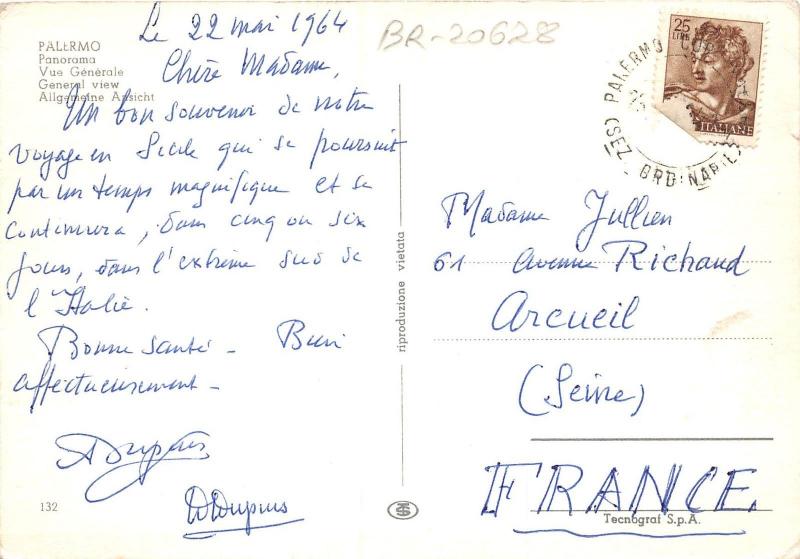 PALERMO
Panorama
Vue Générale
General view
Allgemeine Ansicht
Le 22 mai 1964
Chère Madame,
Un bon souvenir de notre
voyage en Sicile qui se poursuit
par un temps magnifique et se
continuera, dans cinq ou six
jours, dans l'extrême sud de
l'Italie.
Bonne santé - Bien
affectueusement -
ADupuis
DDupuis
132
riproduzione vietata
BR-20628
25
LIRE
ITALIANE
PALERMO
Madame Jullien
61 avenue Richaud
Arcueil
(Seine)
FRANCE
Tecnograf S.p.A.